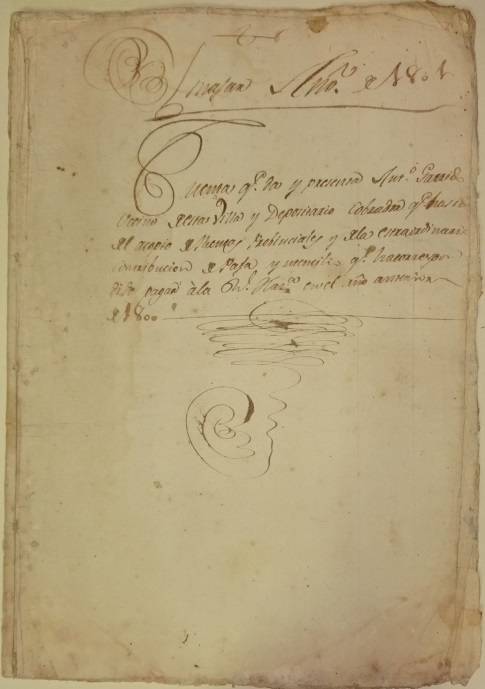 Año. de 1801
Cuenta qe. da y presenta Anto. Garrido
vecino de esta Villa y Depositario Cobrador qe. ha sido
del acopio de Rentas Probinciales y de la extraordinaria
contribucion de Paja y utencilio qe.
pagar à la Rl. Hazda. en el año anterior
de 1800